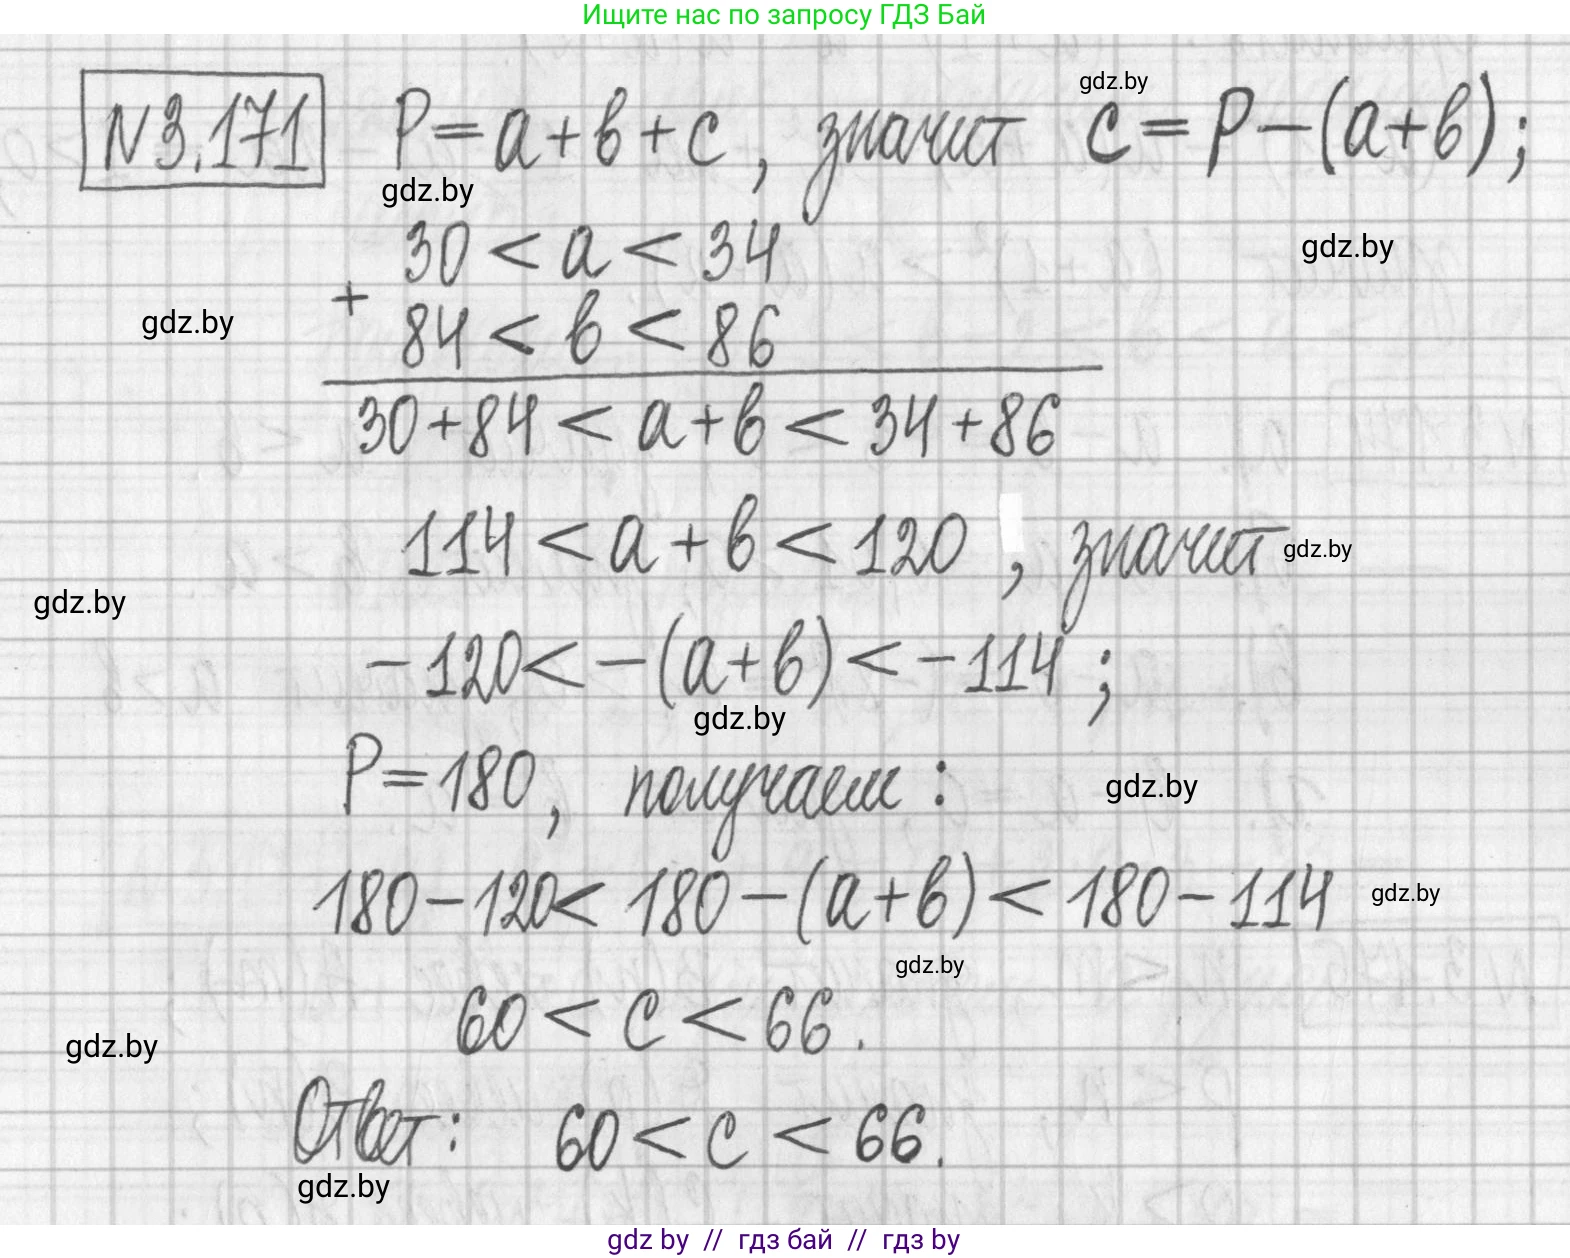 Ищите нас по запросу ГДЗ Бай
N3.171 P=a+b+c, значит c=P-(a+b);
gdz.by
gdz.by
30<a<34
gdz.by
+
84<b<86
gdz.by
30+84<a+b<34+86
114<a+b<120, значит
gdz.by
gdz.by
-120<-(a+b)<-114;
gdz.by
P=180, получаем:
gdz.by
180-120<180-(a+b)<180-114
gdz.by
gdz.by
60<c<66.
gdz.by
Ответ: 60<c<66.
gdz.by
gdz by // гдз бай // гдз by